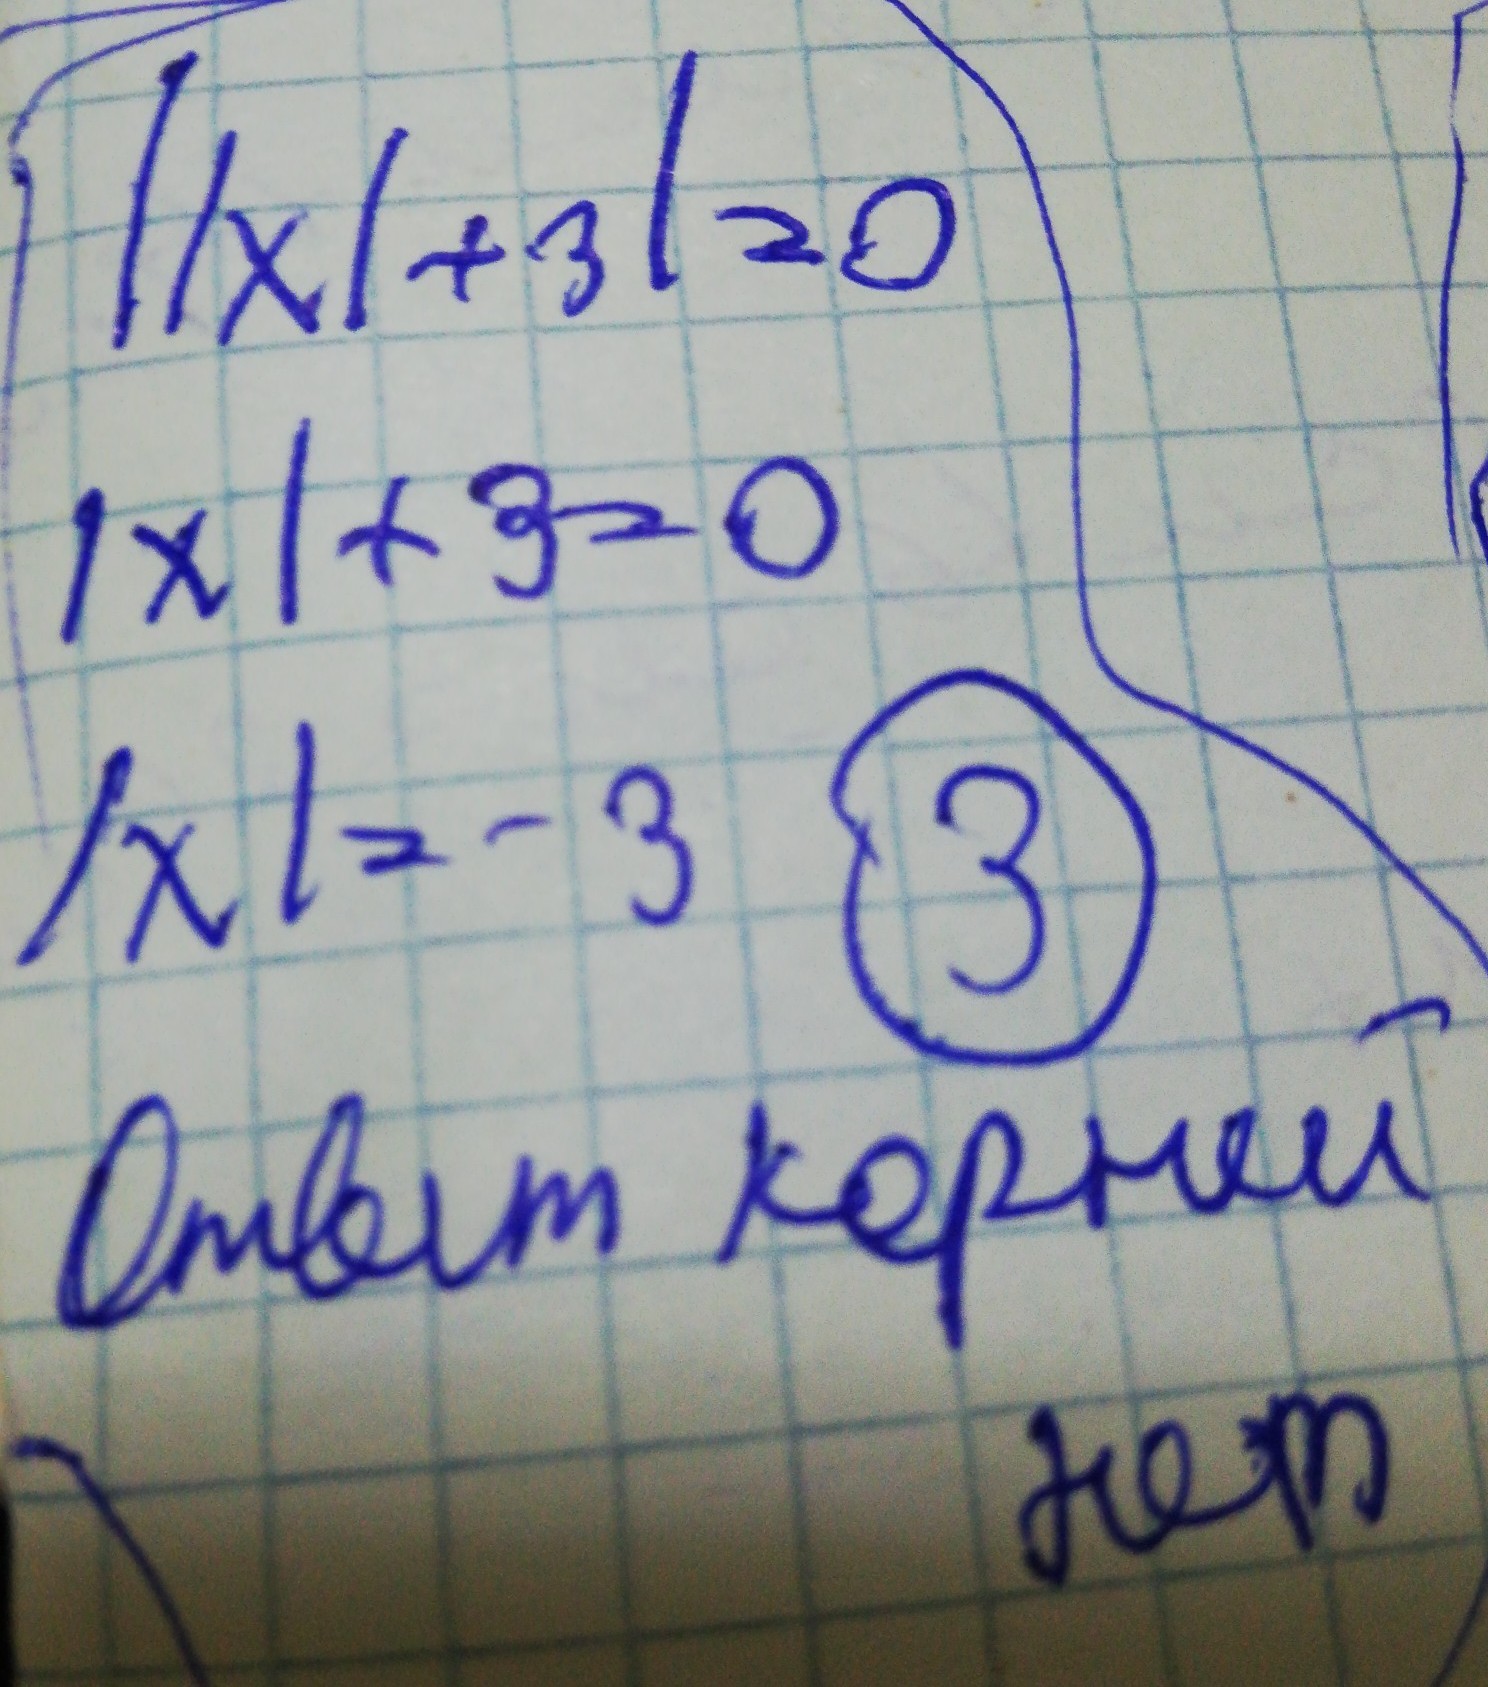 ||x|+3|=0
|x|+3=0
|x|=-3 3
Ответ корней
нет